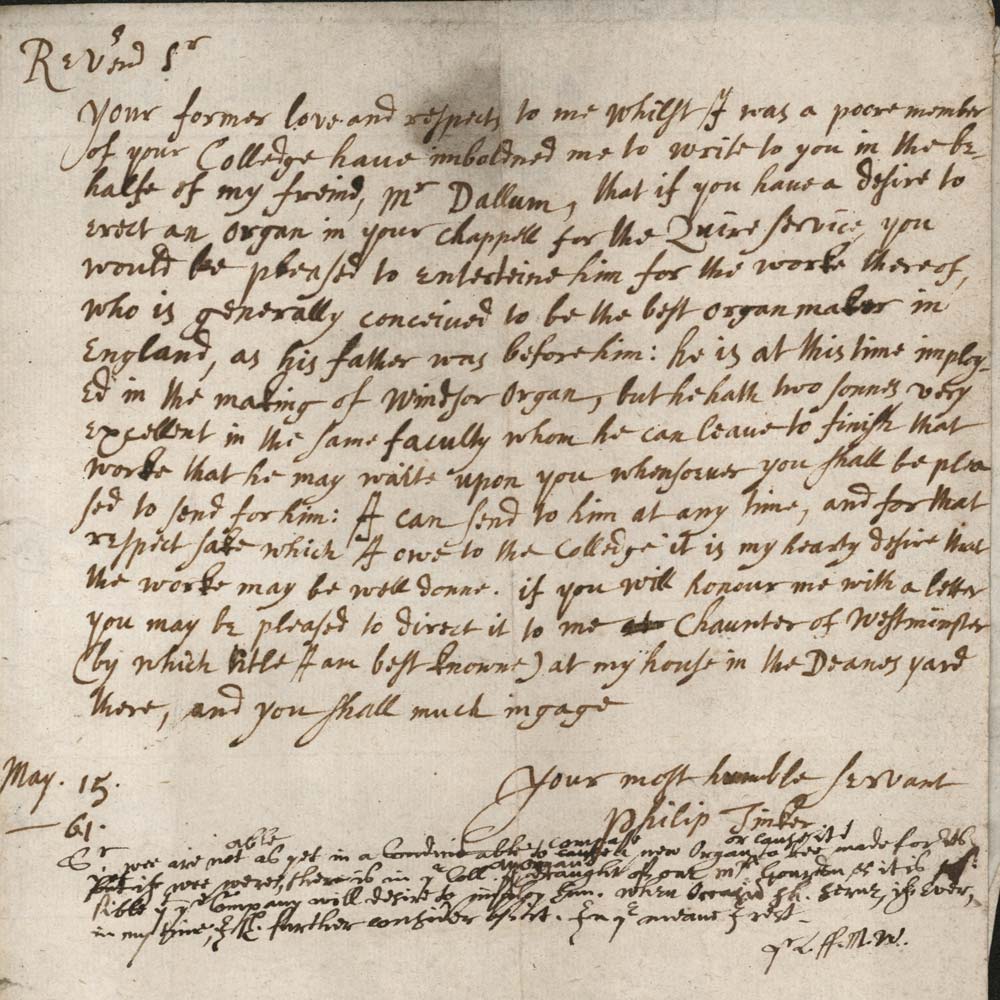 Revsend Sr
Your former love and respects to me whilst I was a poore member
of your Colledge have imboldned me to write to you in the be-
halfe of my freind, Mr Dallum, that if you have a desire to
erect an organ in your chappell for the Quire service, you
would be pleased to enterteine him for the worke thereof,
who is generally conceived to be the best organ maker in
England, as his father was before him: he is at this time imploy-
ed in the making of Windsor Organ, but he hath two sonnes very
excellent in the same faculty whom he can leave to finish that
worke that he may waite upon you whensoever you shall be plea
sed to send for him: I can send to him at any time, and for that
respect sake which I owe to the Colledge it is my hearty desire that
the worke may be well donne. if you will honour me with a letter
you may be pleased to direct it to me Chaunter of Westminster
(by which title I am best knowne) at my house in the Deanes yard
there, and you shall much ingage
Your most humble servant
Philip Tinker
May. 15.
61.
able
Sr, wee are not as yet in a new Organ to bee made for us
But if wee were, there is in ye Coll. draught of one Mr it is
sible yt ye Company will desire to imploy him. when
in my time, further consider of it. In ye meane I rest